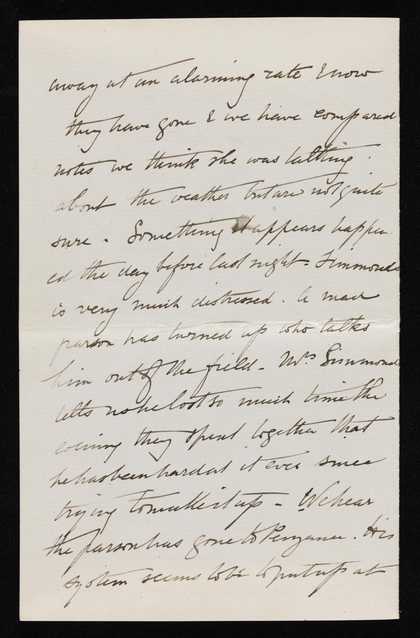 away at an alarming rate & now
they have gone & we have compared
notes we think she was talking
about the weather but are not quite
sure - Something it appears happen
ed the day before last night - Simmonds
is very much distressed. A mad
parson has turned up who talks
him out of the field - Mrs Simmond
tells us he lost so much time the
evening they spent together that
he has been hard at it ever since
trying to make it up - We hear
the parson has gone to Penzance. His
system seems to be to put up at